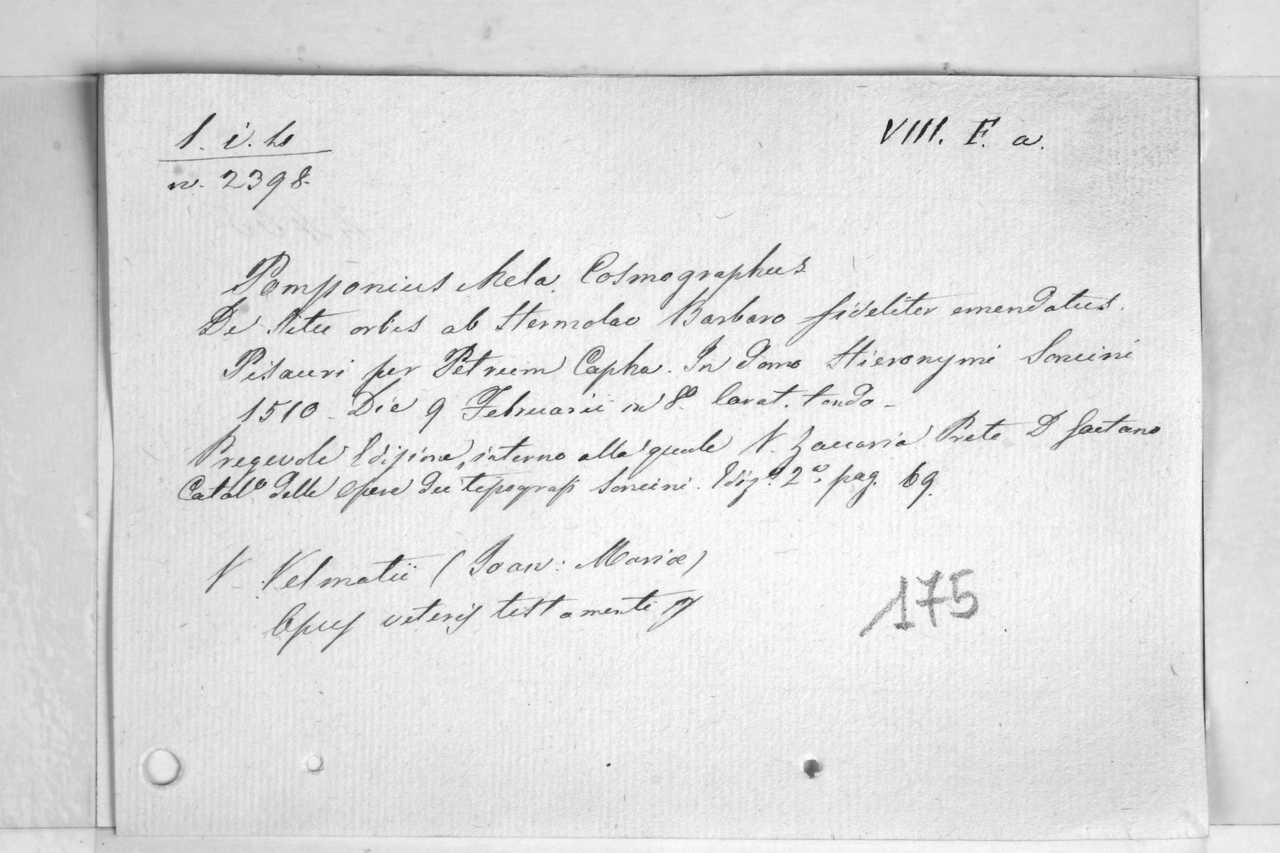 VIII. F. a.
n. 2398.
Pomponius Mela. Cosmographus
De Situ orbis ab Hermolao Barbaro fideliter emendatus.
Pisauri per Petrum Capha. In domo Hieronymi Soncini
1510. Die 9 Februarii in 8.º Carat. tondo.
Pregevole Edizione, intorno alla quale V. Zaccaria Prete D Gaetano
Catal.º delle Opere dei tipografi Soncini. Ediz.e 2.a pag. 69.
V. Velmatii (Joan: Mariæ)
Opus veteris testamenti
175